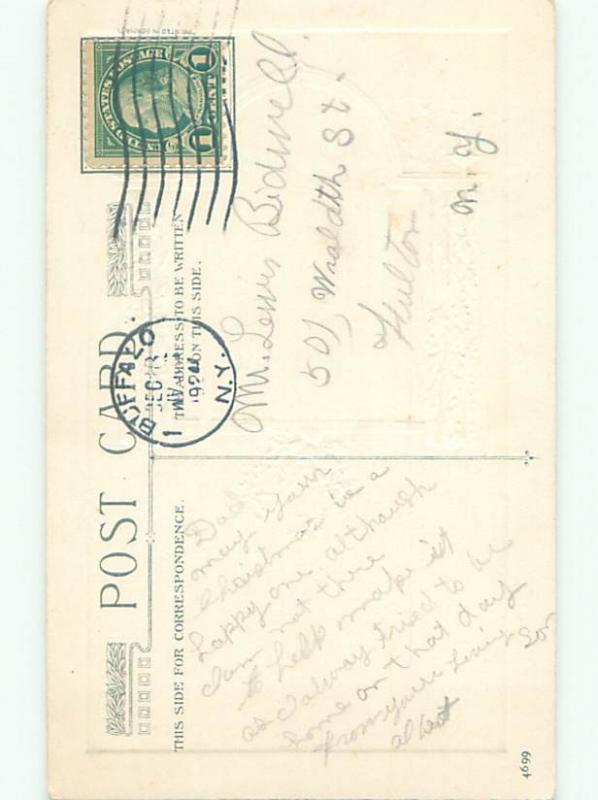 PRINTED IN GERMANY
UNITED STATES POSTAGE
1 CENT 1
POST CARD.
THIS SIDE FOR CORRESPONDENCE.
THE ADDRESS TO BE WRITTEN
ON THIS SIDE.
BUFFALO
DEC
1924
N.Y.
1
Dad
may your
Christmas is a
happy one. although
I am not there
to help make it
as I alway tried to be
home on that day
from your Loving Son
albert
Mr. Lewis Bidwell.
501 St.
Fulton
N.Y.
4699